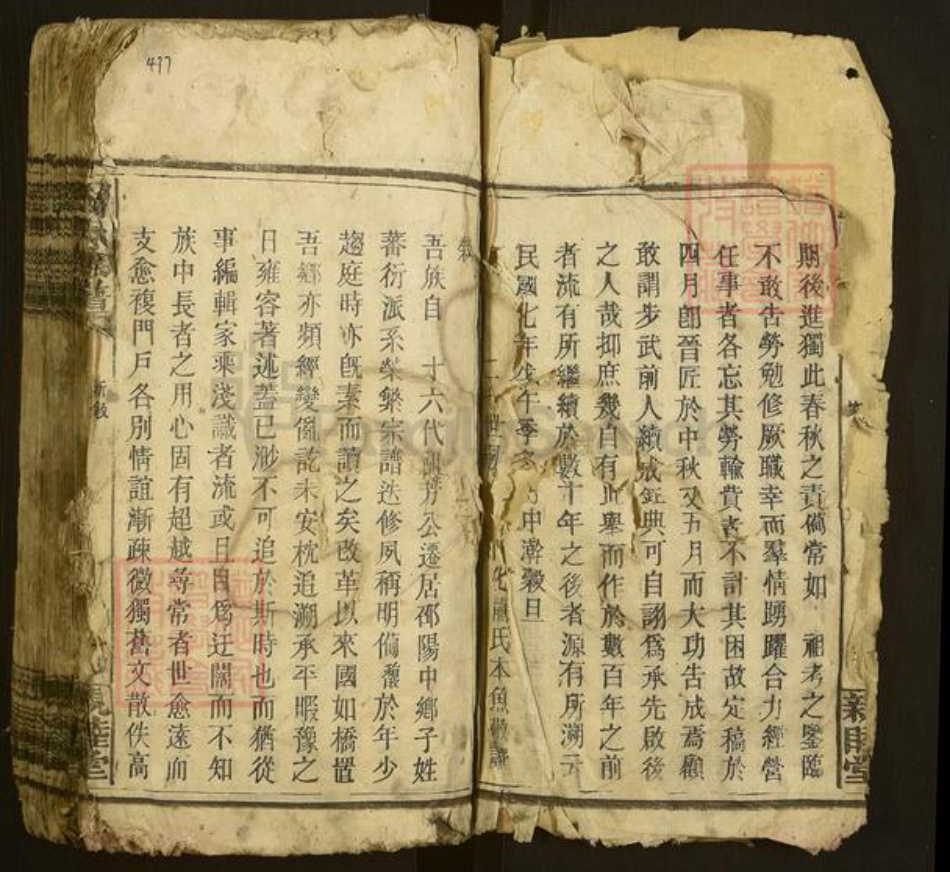 437
期後進獨此春秋之責備常如 祖考之鑒臨
不敢告勞勉修厥職幸而羣情踴躍合力經營
任事者各忘其勞輸費者不計其困故定稿於
四月卽晉匠於中秋交五月而大功告成焉顧
敢謂步武前人續成鉅典可自詡爲承先啟後
之人哉抑庶幾自有此舉而作於數百年之前
者流有所繼續於數十年之後者源有所溯云
民國七年戊午季冬 甲澣穀旦
二 世 化龍氏本魚 謹
吾族自 十六代 芳公遷居邵陽中鄉子姓
蕃衍派系榮繁宗譜迭修夙稱明備馥於年少
趨庭時亦旣素而讀之矣改革以來國如橋置
吾鄉亦頻經變亂訖未安枕追溯承平暇豫之
日雍容著述蓋已渺不可追於斯時也而猶從
事編輯家乘淺識者流或且目爲迂闊而不知
族中長者之用心固有超越尋常者世愈遠而
支愈複門戶各別情誼漸疎微獨舊文散佚高
新敍
親睦堂
親睦堂